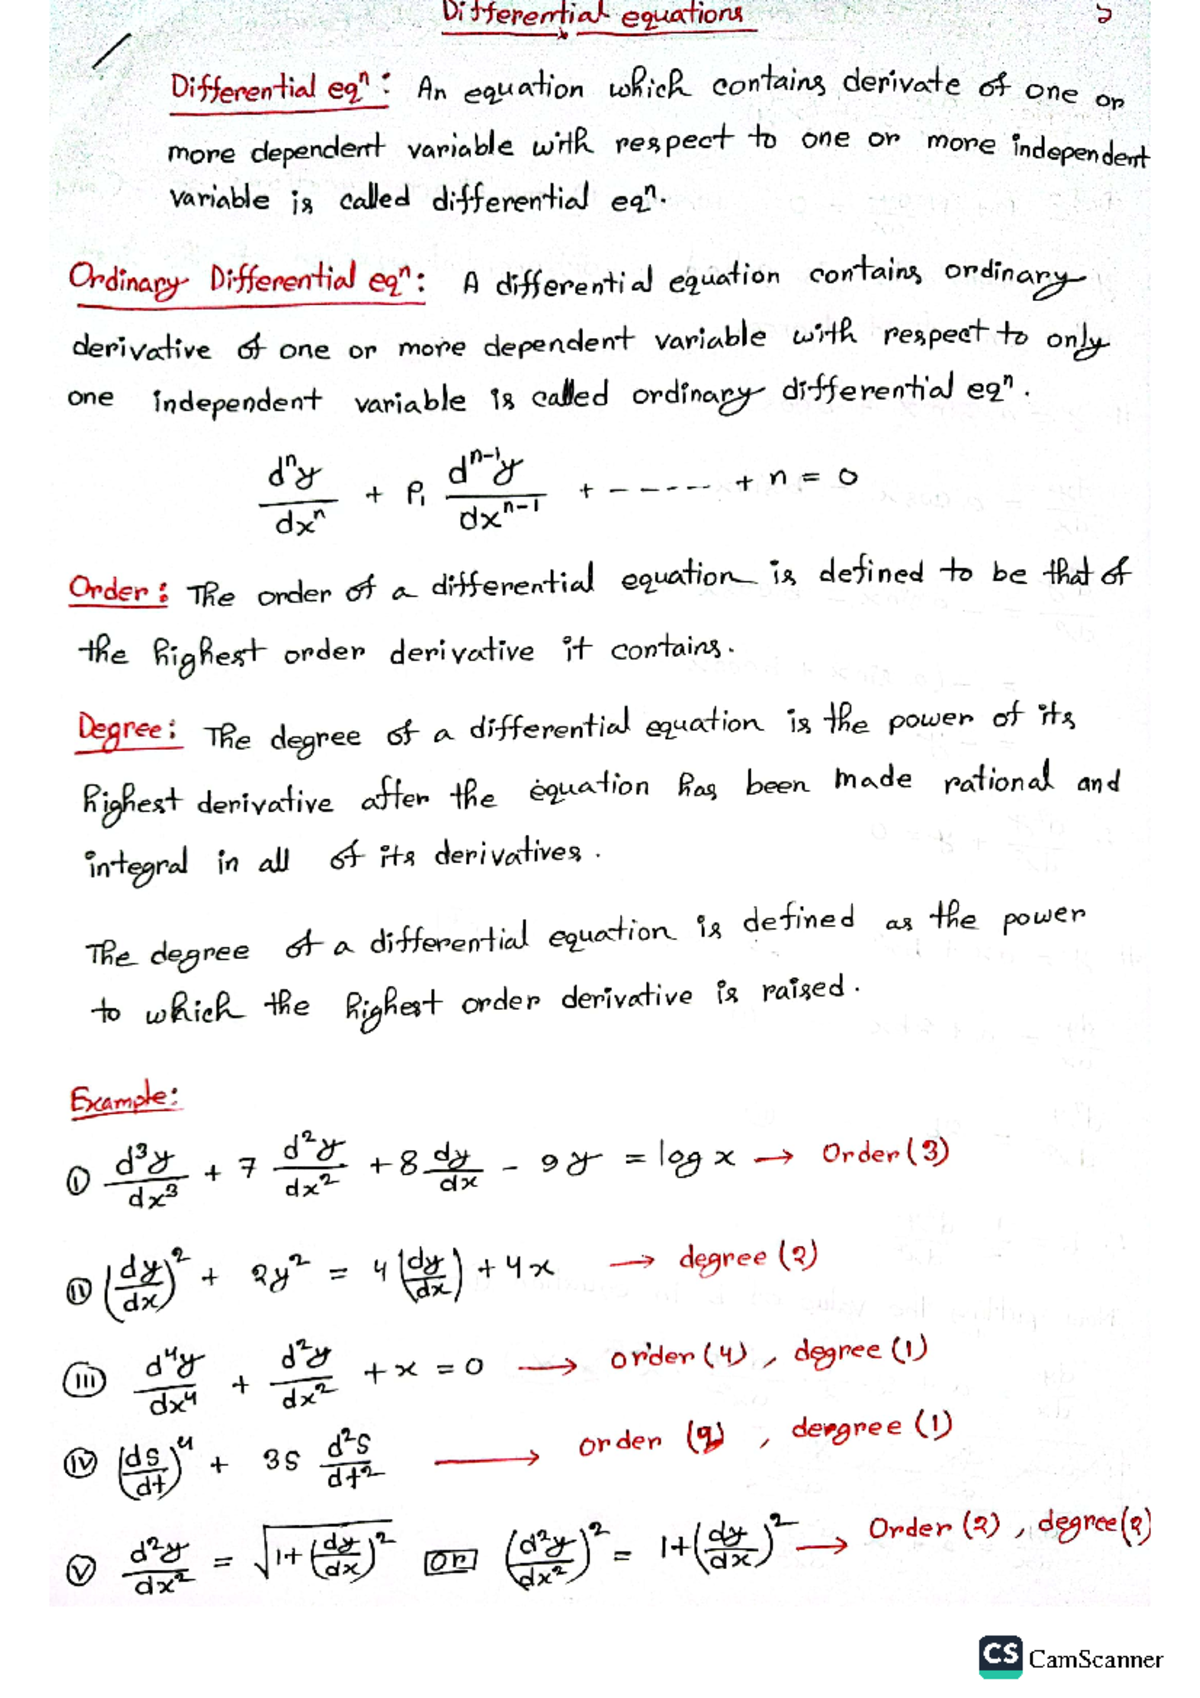 Differential equations
Differential eqⁿ: An equation which contains derivate of one or
more dependent variable with respect to one or more independent
variable is called differential eqⁿ.
Ordinary Differential eqⁿ: A differential equation contains ordinary
derivative of one or more dependent variable with respect to only
one independent variable is called ordinary differential eqⁿ.
dⁿy/dxⁿ + P₁ dⁿ⁻¹y/dxⁿ⁻¹ + ------ + n = 0
Order: The order of a differential equation is defined to be that of
the highest order derivative it contains.
Degree: The degree of a differential equation is the power of its
highest derivative after the equation has been made rational and
integral in all of its derivatives.
The degree of a differential equation is defined as the power
to which the highest order derivative is raised.
Example:
(i) d³y/dx³ + 7 d²y/dx² + 8 dy/dx - 9y = log x → Order (3)
(ii) (dy/dx)² + 2y² = 4(dy/dx) + 4x → degree (2)
(iii) d⁴y/dx⁴ + d²y/dx² + x = 0 → order (4), degree (1)
(iv) (ds/dt)⁴ + 3s d²s/dt² → order (2), dergree (1)
(v) d²y/dx² = √(1+(dy/dx)²) or (d²y/dx²)² = 1+(dy/dx)² → Order (2), degree (2)
CS CamScanner